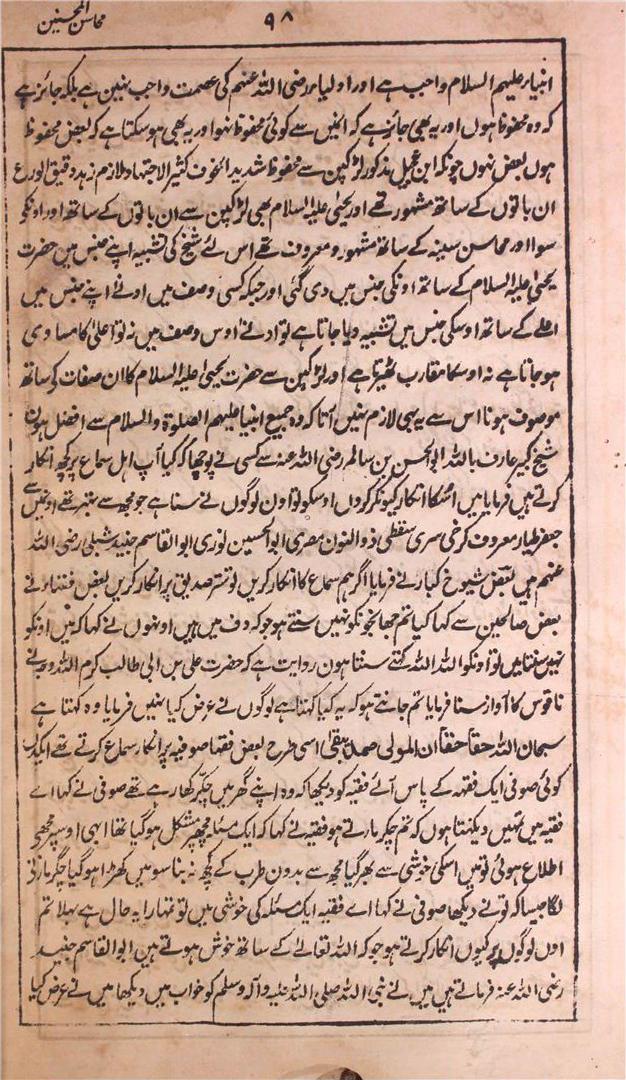 محاسن المحسنین
۹۸
انبیاء علیہم السلام واجب ہے اور اولیاء رضی اللہ عنہم کی عصمت واجب نہیں ہے بلکہ جائز ہے
کہ وہ محفوظ ہوں اور یہ بھی جائز ہے کہ انمیں سے کوئی محفوظ نہو اور یہ بھی ہو سکتا ہے کہ بعض محفوظ
ہوں بعض نہوں چونکہ ابن عجیل مذکور لڑکپن سے محفوظ شدید الخوف کثیر الاجتہاد ملازم زہد دقیق الورع
ان باتوں کے ساتھ مشہور تھے اور یحیٰی علیہ السلام بھی لڑکپن سے ان باتوں کے ساتھ اور اونکو
سوا اور محاسن سنیہ کے ساتھ مشہور و معروف تھے اس لئے شیخ کی تشبیہ اپنے جنس میں حضرت
یحیٰی علیہ السلام کے ساتھ اونکی جنس میں دی گئی اور جبکہ کسی وصف میں ادنے اپنے جنس میں
اعلے کے ساتھ اوسکی جنس میں تشبیہ دیا جاتا ہے تو ادنے اوس وصف میں نہ تو اعلیٰ کا مساوی
ہو جاتا ہے نہ اوسکا مقارب ٹھیرتا ہے اور لڑکپن سے حضرت یحیٰی علیہ السلام کا ان صفات کے ساتھ
موصوف ہونا اس سے یہ بھی لازم نہیں آتا کہ وہ جمیع انبیا علیہم الصلوۃ والسلام سے افضل ہوں
شیخ کبیر عارف باللہ ابوالحسن بن سالم رضی اللہ عنہ سے کسی نے پوچھا کہ کیا آپ اہل سماع پر کچھ انکار
کرتے ہیں فرمایا میں اسکا انکار کیونکر کروں اوسکو تو اون لوگوں نے سنا ہے جو مجھ سے بہتر تھے اونمیں سے
جعفر طیار معروف کرخی سری سقطی ذوالنون مصری ابوالحسین نوری ابوالقاسم جنید شبلی رضی اللہ
عنہم ہیں بعض شیوخ کبار نے فرمایا اگر ہم سماع کا انکار کریں تو ستر صدیق پر انکار کریں بعض فقہاء نے
بعض صالحین سے کہا کیا تم جھانجونکو نہیں سنتے ہو جو کہ دف میں ہیں اونہوں نے کہا کہ میں اونکو
نہیں سنتا میں تو اونکو اللہ اللہ کہتے سنتا ہوں روایت ہے کہ حضرت علی بن ابی طالب کرم اللہ وجہہ نے
ناقوس کا آواز سنا فرمایا تم جانتے ہو کہ یہ کیا کہتا ہے لوگوں نے عرض کیا نہیں فرمایا وہ کہتا ہے
سبحان اللہ حقا حقا ان المولی صمد یبقی اسی طرح بعض فقہا صوفیہ پر انکار سماع کرتے تھے ایکدن
کوئی صوفی ایک فقیہ کے پاس آئے فقیہ کو دیکھا کہ وہ اپنے گھر میں چکر کھا رہے تھے صوفی نے کہا اے
فقیہ میں تمہیں دیکھتا ہوں کہ تم چکر مارتے ہو فقیہ نے کہا کہ ایک مسئلہ مجھپر مشکل ہو گیا تھا ابہی اوسپر مجھے
اطلاع ہوئی تو میں اسکی خوشی سے بھر گیا مجھ سے بدون طرب کے کچھ نہ بنا سو میں کھڑا ہو گیا چکر مارنے
لگا جیسا کہ تونے دیکھا صوفی نے کہا اے فقیہ ایک مسئلہ کی خوشی میں تو تمہارا یہ حال ہے بھلا تم
اون لوگوں پر کیوں انکار کرتے ہو جو کہ اللہ تعالےٰ کے ساتھ خوش ہوتے ہیں ابوالقاسم جنید
رضی اللہ عنہ فرماتے ہیں میں نے نبی اللہ صلی اللہ علیہ وآلہ وسلم کو خواب میں دیکھا میں نے عرض کیا